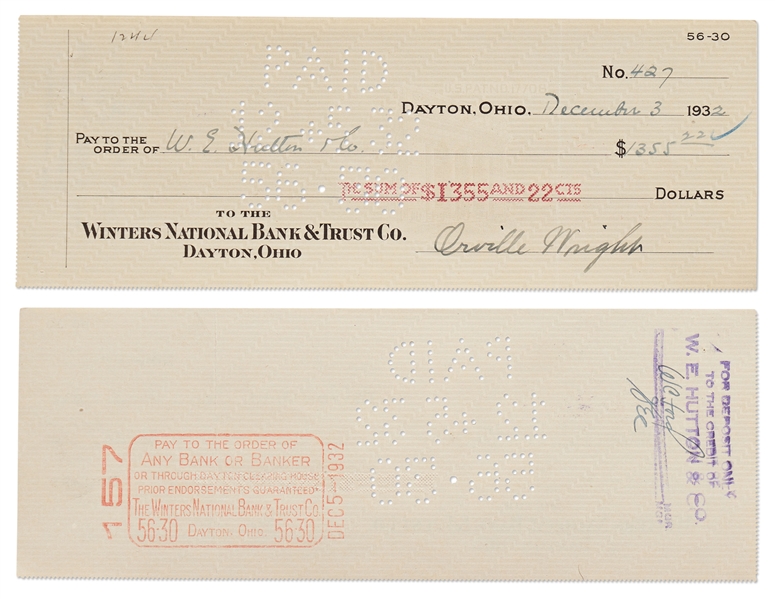 56-30
No. 427
DAYTON, OHIO, December 3 1932
PAY TO THE
ORDER OF W. E. Hutton & Co. $1355 22
THE SUM OF $1355 AND 22 CTS DOLLARS
TO THE
WINTERS NATIONAL BANK & TRUST CO.
DAYTON, OHIO
Orville Wright
PAID
56-30
PAY TO THE ORDER OF
ANY BANK OR BANKER
OR THROUGH DAYTON CLEARING HOUSE
PRIOR ENDORSEMENTS GUARANTEED
THE WINTERS NATIONAL BANK & TRUST CO.
56-30 DAYTON, OHIO. 56-30
157
DEC 5 - 1932
PAID
56-30
FOR DEPOSIT ONLY
TO THE CREDIT OF
W. E. HUTTON & CO.